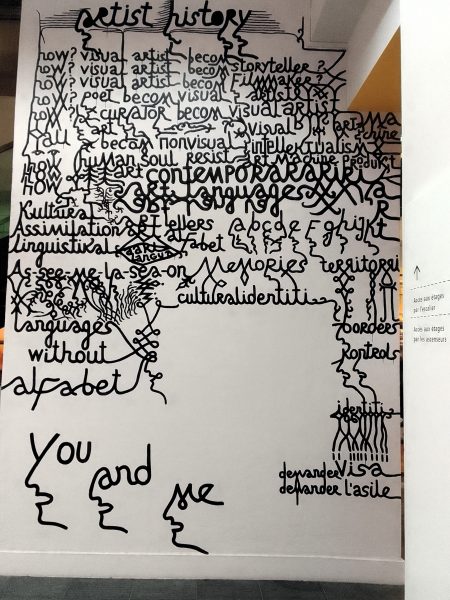 artist history
how? visual artist becom storyteller ?
how? visual artist becom Filmmaker ?
how? visual artist becom
how? poet becom visual artist
curator becom visual artist
art visual
all becam nonvisual intellektualism
how human soul resist art machine produkt
how art contemporararikiri
art languages
Kultural art tellers a b c d e F g h i j k
Assimilation
linguistikal alfabet
As-see-me-la-sea-on Memories territorri
culturalidentiti
languages borders
without Kontrols
alfabet
identiti
demander Visa
demander l'asile
You
and
me
Accès aux étages
par l'escalier
Accès aux étages
par les ascenseurs